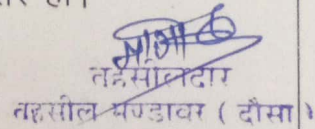 तहसीलदार
तहसील मण्डावर ( दौसा )